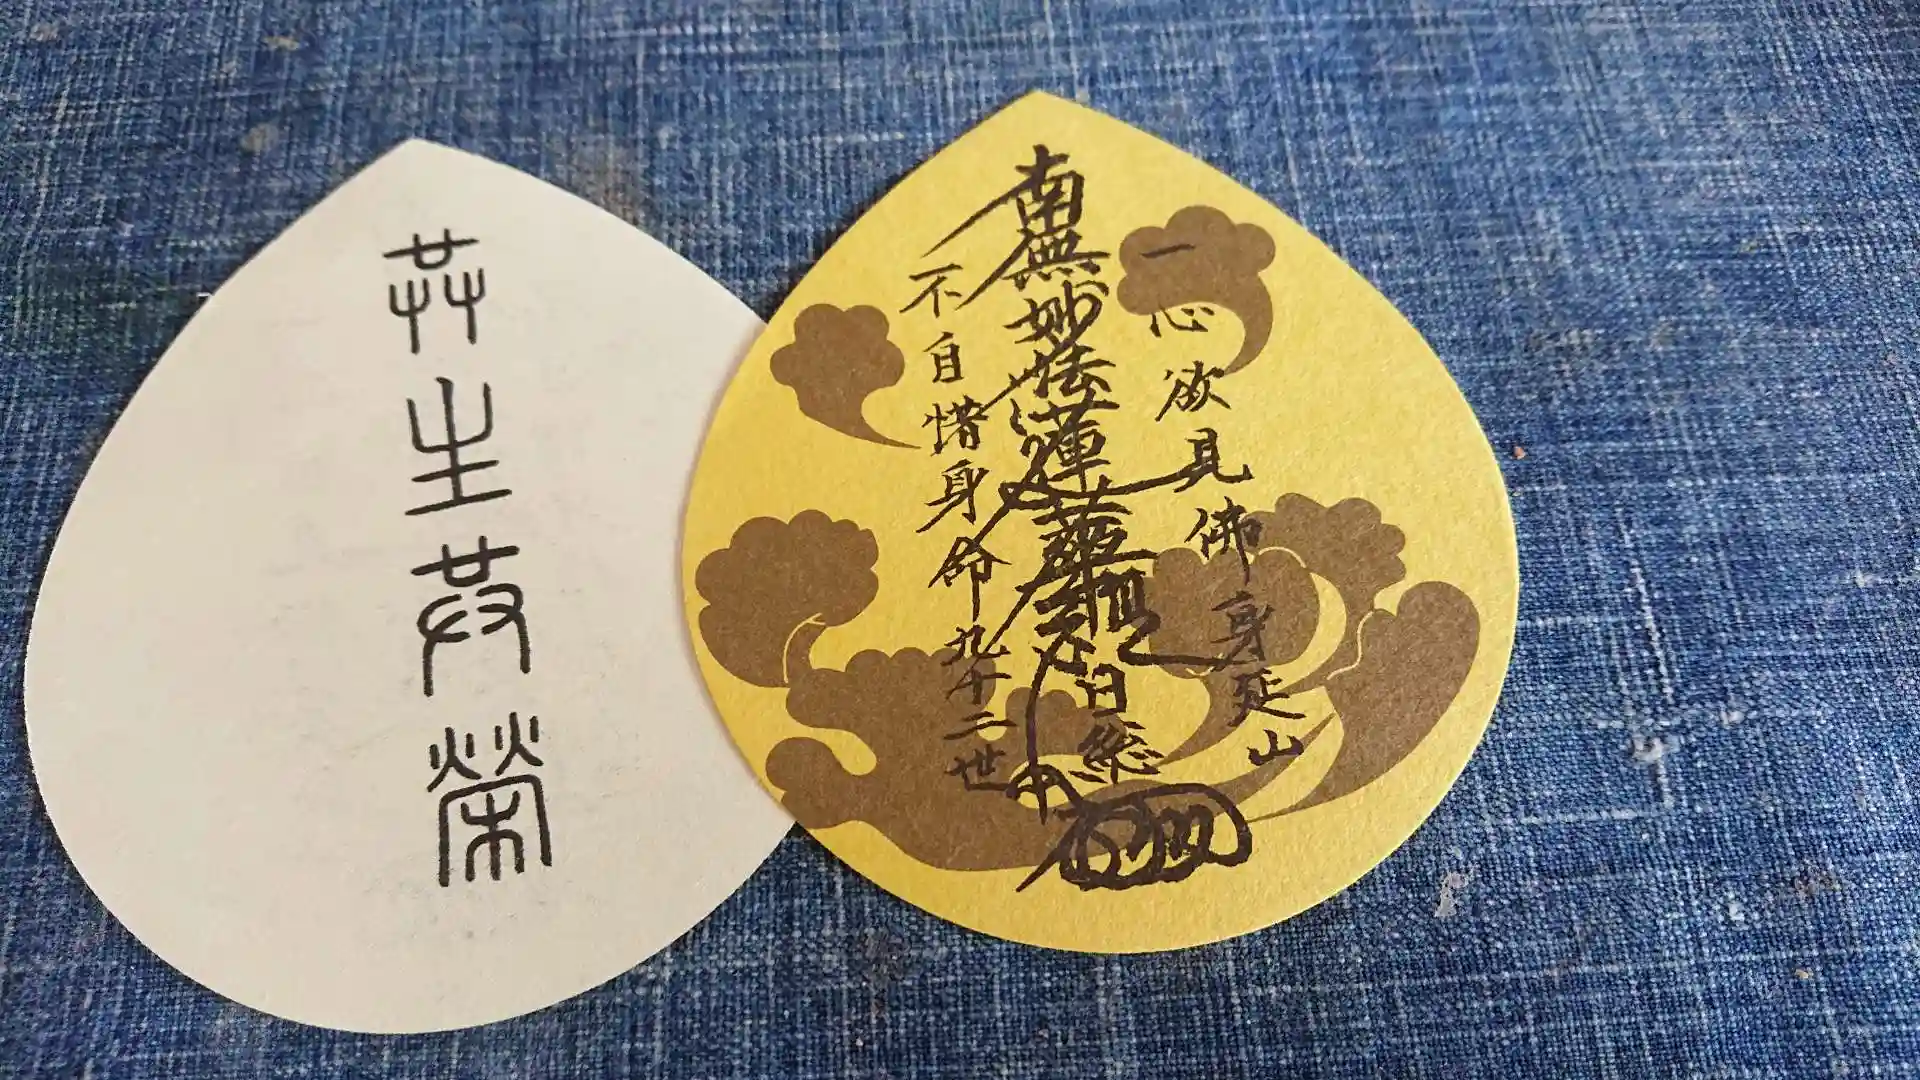 共生共榮
一心欲見佛 身延山
南無妙法蓮華経 日総
不自惜身命 九十二世